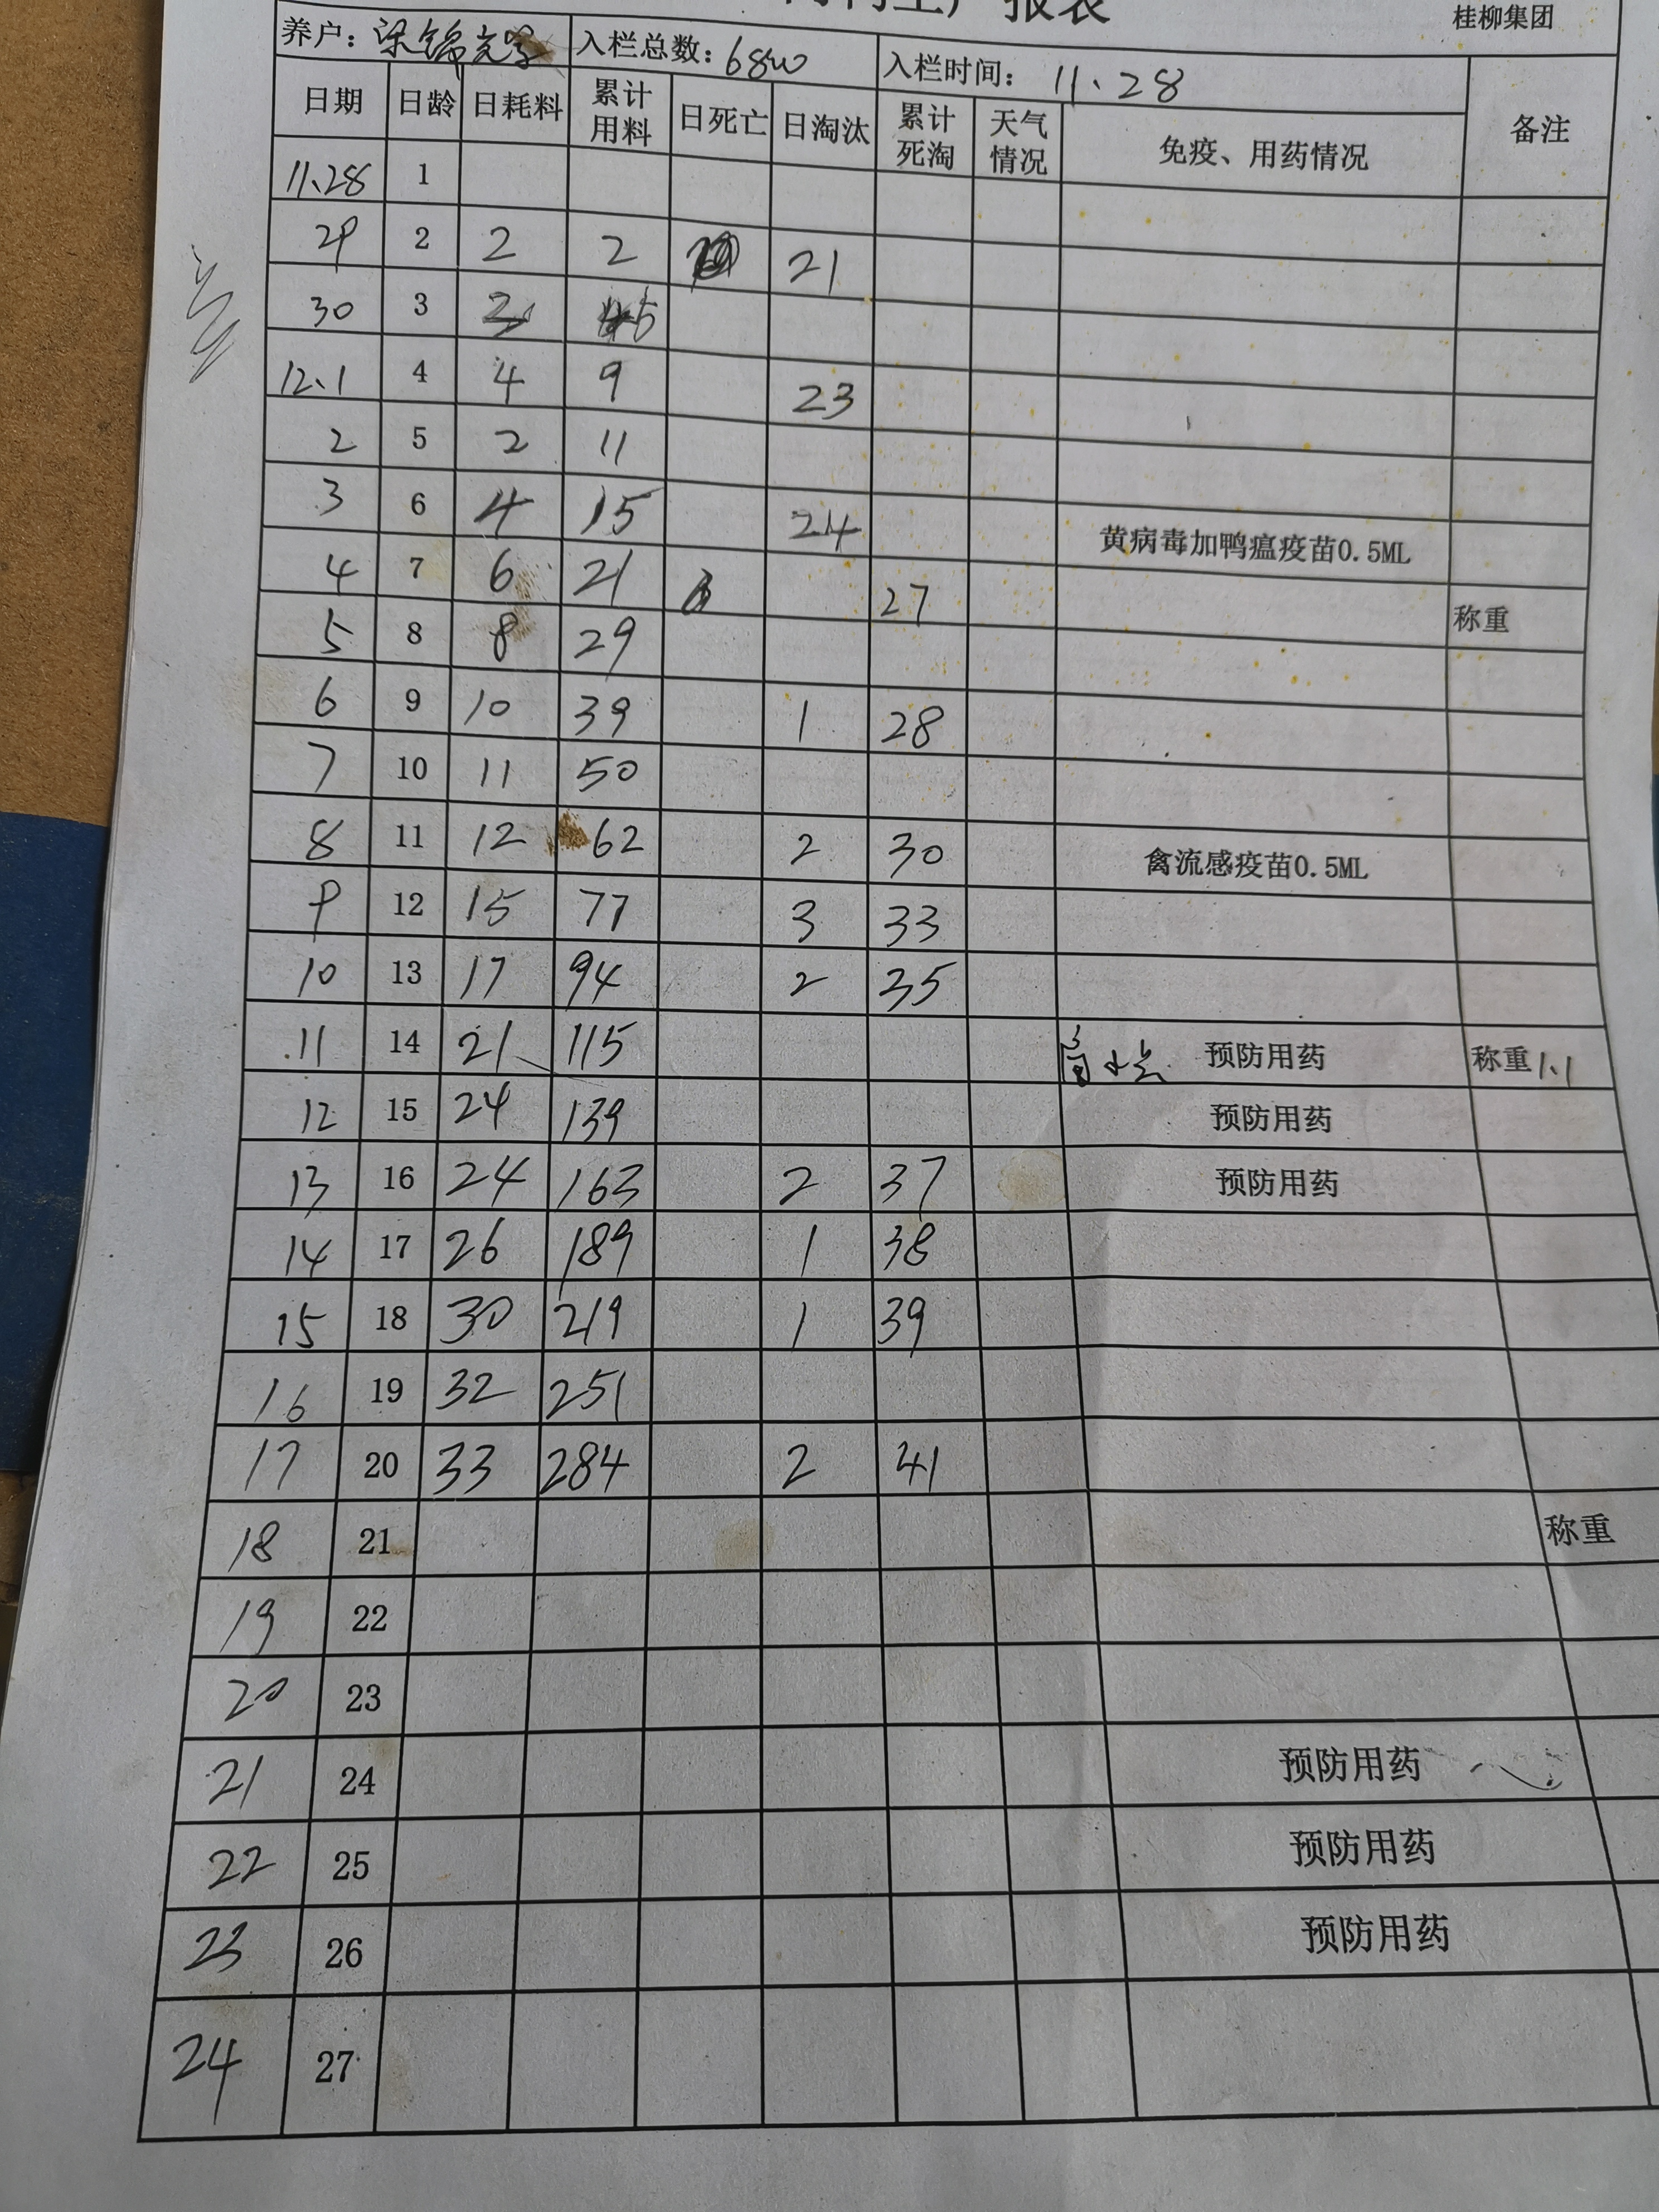 报表
桂柳集团
养户： 入栏总数：6800 入栏时间：11.28
日期 日龄 日耗料 累计用料 日死亡 日淘汰 累计死淘 天气情况 免疫、用药情况 备注
11.28 1
29 2 2 2 21
30 3 5
12.1 4 4 9 23
2 5 2 11
3 6 4 15 24 黄病毒加鸭瘟疫苗0.5ML
4 7 6 21 27 称重
5 8 8 29
6 9 10 39 1 28
7 10 11 50
8 11 12 62 2 30 禽流感疫苗0.5ML
9 12 15 77 3 33
10 13 17 94 2 35
11 14 21 115 预防用药 称重1.1
12 15 24 139 预防用药
13 16 24 163 2 37 预防用药
14 17 26 189 1 38
15 18 30 219 1 39
16 19 32 251
17 20 33 284 2 41
18 21 称重
19 22
20 23
21 24 预防用药
22 25 预防用药
23 26 预防用药
24 27